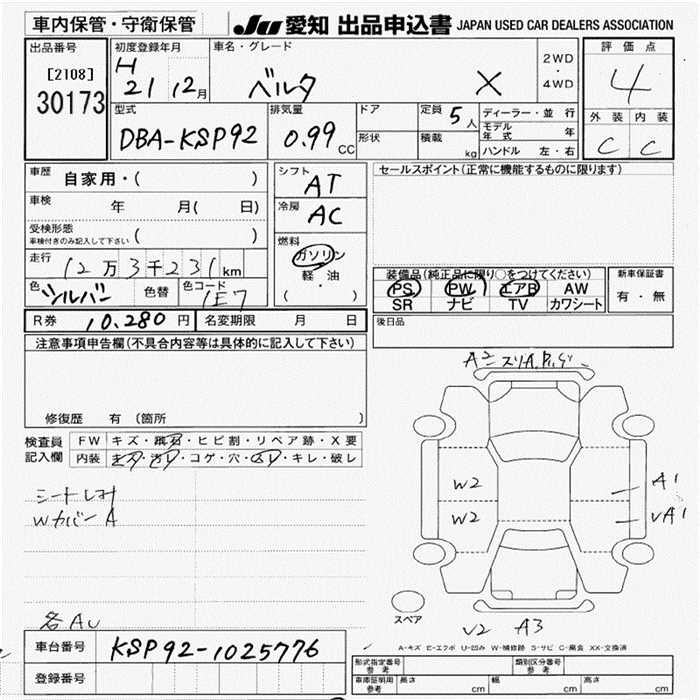 車内保管・守衛保管
JU 愛知 出品申込書 JAPAN USED CAR DEALERS ASSOCIATION
出品番号
[2108]
30173
初度登録年月
H
21 12月
車名・グレード
ベルタ X
2WD
・
4WD
評価点
4
外装 内装
C C
型式
DBA-KSP92
排気量
0.99 CC
ドア
形状
定員 5人
積載 kg
ディーラー・並行
モデル年式 年
ハンドル 左・右
車歴 自家用・( )
車検 年 月( 日)
受検形態
車検付きのみ記入して下さい ( )
走行 12万3千231km
色 シルバー 色替 色コード 1E7
シフト AT
冷房 AC
燃料
ガソリン
軽・油
( )
セールスポイント(正常に機能するものに限ります)
装備品(純正品に限り○をつけてください)
PS PW エアB AW
SR ナビ TV カワシート
新車保証書
有・無
R券 10,280円 名変期限 月 日
後日品
注意事項申告欄(不具合内容等は具体的に記入して下さい)
修復歴 有 (箇所 )
検査員記入欄
FW キズ・飛石・ヒビ割・リペア跡・X要
内装 キズ・汚レ・コゲ・穴・スレ・キレ・破レ
Wカバー A
各AU
A2
W2
W2
A1
VA1
スペア
V2 A3
A-キズ E-エクボ U-凹み W-補修跡 S-サビ C-腐食 XX-交換済
車台番号 KSP92-1025776
登録番号
形式指定番号 参考
類別区分番号 参考
車庫証明用 参考 長さ cm 幅 cm 高さ cm